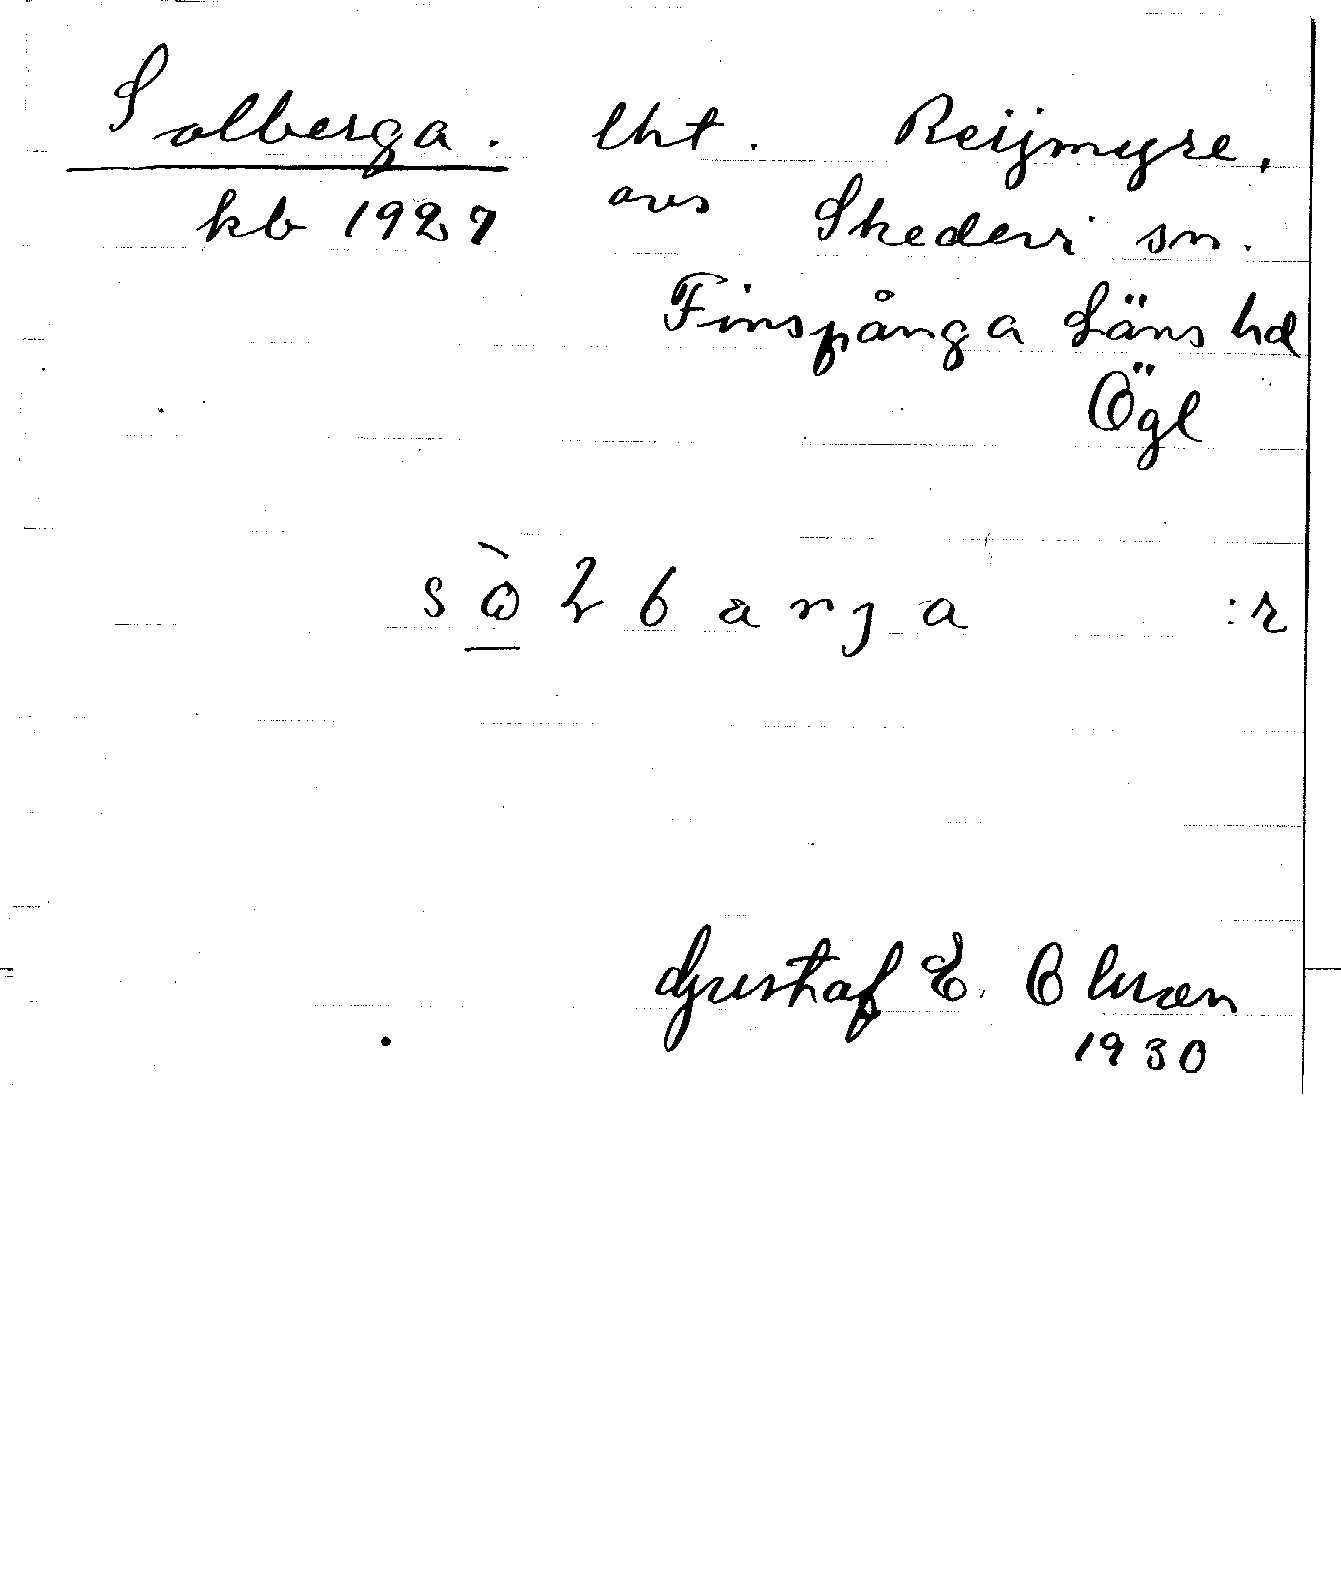 Solberga. lht. Reijmyre.
kb 1927 avs Skedevi sn.
Finspånga Läns hd
Ögl
:r
Gustaf E. Olsson
1930